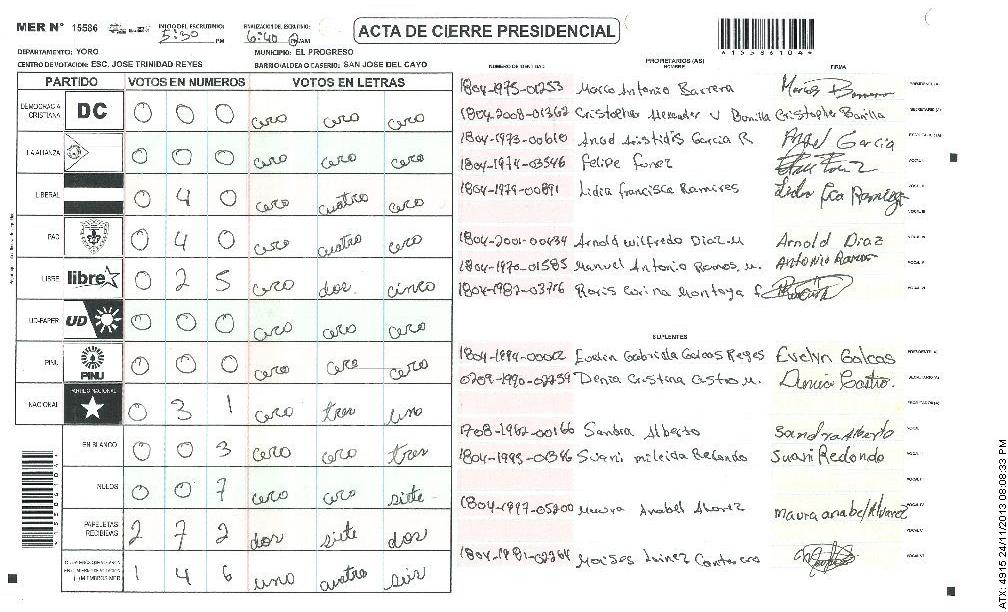 MER N° 15586
INICIO DEL ESCRUTINIO: 5:30 PM
FINALIZACION DEL ESCRUTINIO: 6:40 PM/AM
ACTA DE CIERRE PRESIDENCIAL
DEPARTAMENTO: YORO
MUNICIPIO: EL PROGRESO
CENTRO DE VOTACION: ESC. JOSE TRINIDAD REYES
BARRIO/ALDEA O CASERIO: SAN JOSE DEL CAYO
PARTIDO VOTOS EN NUMEROS VOTOS EN LETRAS
DEMOCRACIA CRISTIANA DC 0 0 0 cero cero cero
LA ALIANZA 0 0 0 cero cero cero
LIBERAL 0 4 0 cero cuatro cero
PAC 0 4 0 cero cuatro cero
LIBRE libre 0 2 5 cero dos cinco
UD-FAPER UD 0 0 0 cero cero cero
PINU PINU 0 0 0 cero cero cero
NACIONAL PARTIDO NACIONAL 0 3 1 cero tres uno
EN BLANCO 0 0 3 cero cero tres
NULOS 0 0 7 cero cero siete
PAPELETAS RECIBIDAS 2 7 2 dos siete dos
1 4 6 uno cuatro seis
PROPIETARIOS (AS)
NUMERO DE IDENTIDAD NOMBRE FIRMA
1804-1975-01253 Marco Antonio Barrera Marco Barrera
1804-2008-01362 Cristopher Alexander V Bonilla Cristopher Bonilla
1804-1973-00610 Angel Aristides Garcia R Angel Garcia
1804-1974-03546 Felipe Funez
1804-1979-00891 Lidia Francisca Ramires Lidia Fca Ramirez
1804-2001-00434 Arnold Wilfredo Diaz M Arnold Diaz
1804-1970-01585 Manuel Antonio Ramos M. Antonio Ramos
1804-1982-03716 Corina Montoya
SUPLENTES
1804-1994-00002 Evelin Gabriela Galeas Reyes Evelyn Galeas
0209-1990-02759 Denia Cristina Castro M. Denia Castro.
1708-1962-00166 Sandra Alberto Sandra Alberto
1804-1993-01346 Suani Mileida Redondo Suani Redondo
1804-1997-05200 Maura Anabel Alvarez Maura anabel Alvarez
1804-1981-02264 Moises
ATX: 4915 24/11/2013 08:08:33 PM